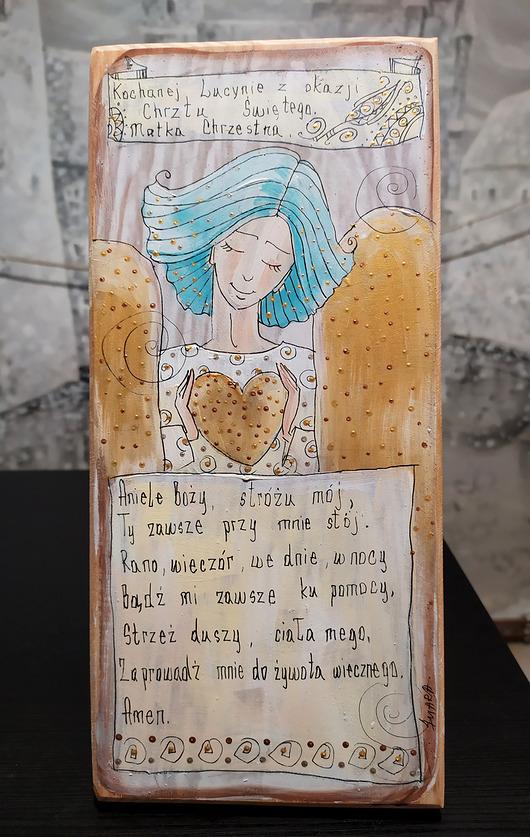 Kochanej Lucynie z okazji
Chrztu Świętego.
Matka Chrzestna.
Aniele Boży, stróżu mój,
Ty zawsze przy mnie stój.
Rano, wieczór, we dnie, w nocy
Bądź mi zawsze ku pomocy,
Strzeż duszy, ciała mego,
Zaprowadź mnie do żywota wiecznego.
Amen.